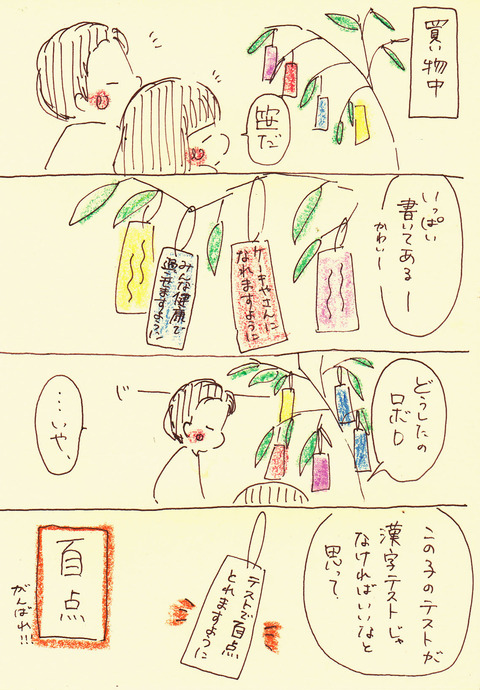 買い物中
笹だ
いっぱい
書いてあるー
かわいー
ケーキやさんに
なれますように
みんな健康で
過せますように
どうしたの
ロボロ
じー
…いや、
この子のテストが
漢字テストじゃ
なければいいなと
思って、
テストで百点
とれますように
百点
がんばれ!!!